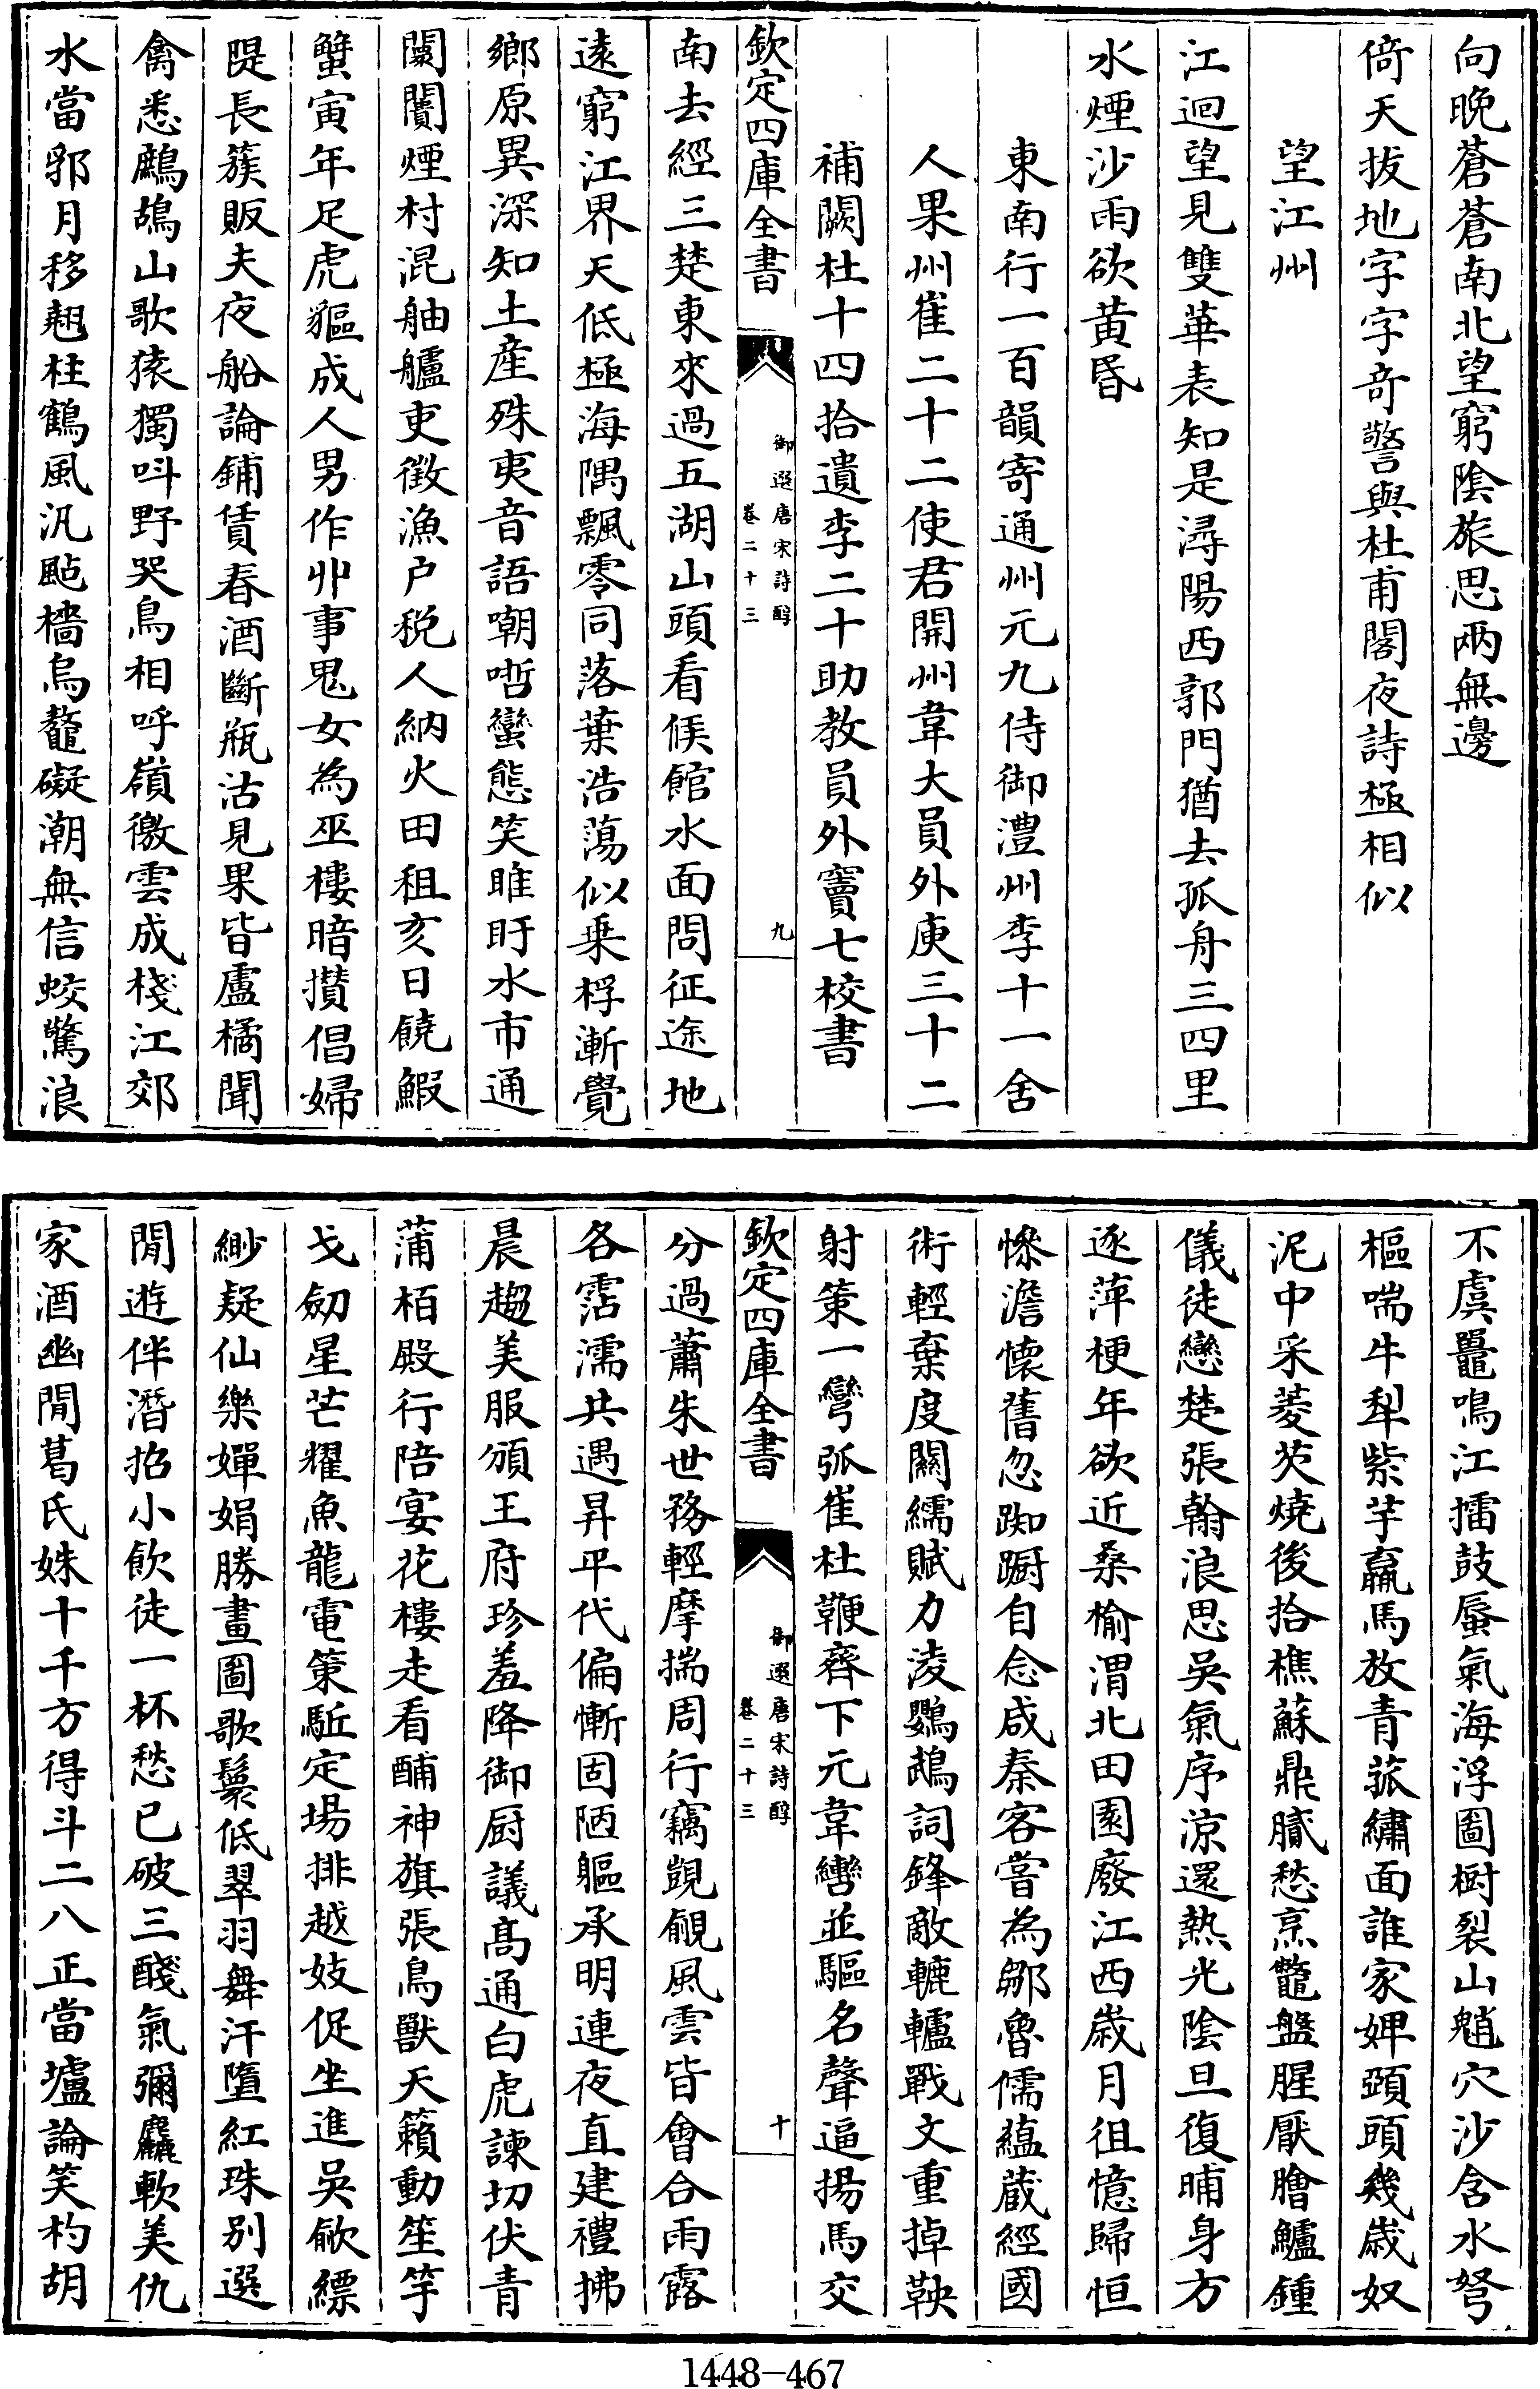 向晚蒼蒼南北望窮陰旅思兩無邊
倚天拔地字字奇警與杜甫閣夜詩極相似
望江州
江迴望見雙華表知是潯陽西郭門猶去孤舟三四里
水煙沙雨欲黃昏
東南行一百韻寄通州元九侍御澧州李十一舍
人果州崔二十二使君開州韋大員外庾三十二
補闕杜十四拾遺李二十助教員外竇七校書
欽定四庫全書
御選唐宋詩醇
卷二十三
九
南去經三楚東來過五湖山頭看候館水面問征途地
遠窮江界天低極海隅飄零同落葉浩蕩似乗桴漸覺
鄉原異深知土産殊夷音語嘲哳蠻態笑睢盱水市通
闤闠煙村混舳艫吏徵漁户税人納火田租亥日饒鰕
蟹寅年足虎貙成人男作丱事鬼女為巫樓暗攢倡婦
隄長簇販夫夜船論鋪賃春酒斷瓶沽見果皆盧橘聞
禽悉鷓鴣山歌猿獨呌野哭鳥相呼嶺徼雲成棧江郊
水當郛月移翹柱鶴風汎颭檣烏鼇礙潮無信蛟驚浪
不虞鼉鳴江擂鼓蜃氣海浮圖樹裂山魈穴沙含水弩
樞喘牛犁紫芋羸馬放青菰繡面誰家婢鵶頭幾歲奴
泥中采菱芡燒後拾樵蘇鼎膩愁烹鼈盤腥厭膾鱸鍾
儀徒戀楚張翰浪思吳氣序涼還熱光陰旦復晡身方
逐萍梗年欲近桑榆渭北田園廢江西歲月徂憶歸恒
慘澹懷舊忽踟蹰自念咸秦客嘗為鄒魯儒蘊蔵經國
術輕棄度關繻賦力淩鸚鵡詞鋒敵轆轤戰文重掉鞅
射策一彎弧崔杜鞭齊下元韋轡並驅名聲逼揚馬交
欽定四庫全書
御選唐宋詩醇
卷二十三
十
分過蕭朱世務輕摩揣周行竊覬覦風雲皆會合雨露
各霑濡共遇昇平代偏慚固陋軀承明連夜直建禮拂
晨趨美服頒王府珍羞降御厨議高通白虎諫切伏青
蒲栢殿行陪宴花樓走看酺神旗張鳥獸天籟動笙竽
戈劒星芒耀魚龍電策駈定場排越妓促坐進吳歈縹
緲疑仙樂嬋娟勝畫圖歌鬟低翠羽舞汗墮紅珠別選
閒遊伴潛招小飲徒一杯愁已破三醆氣彌麤軟美仇
家酒幽閒葛氏姝十千方得斗二八正當壚論笑杓胡
1448-467